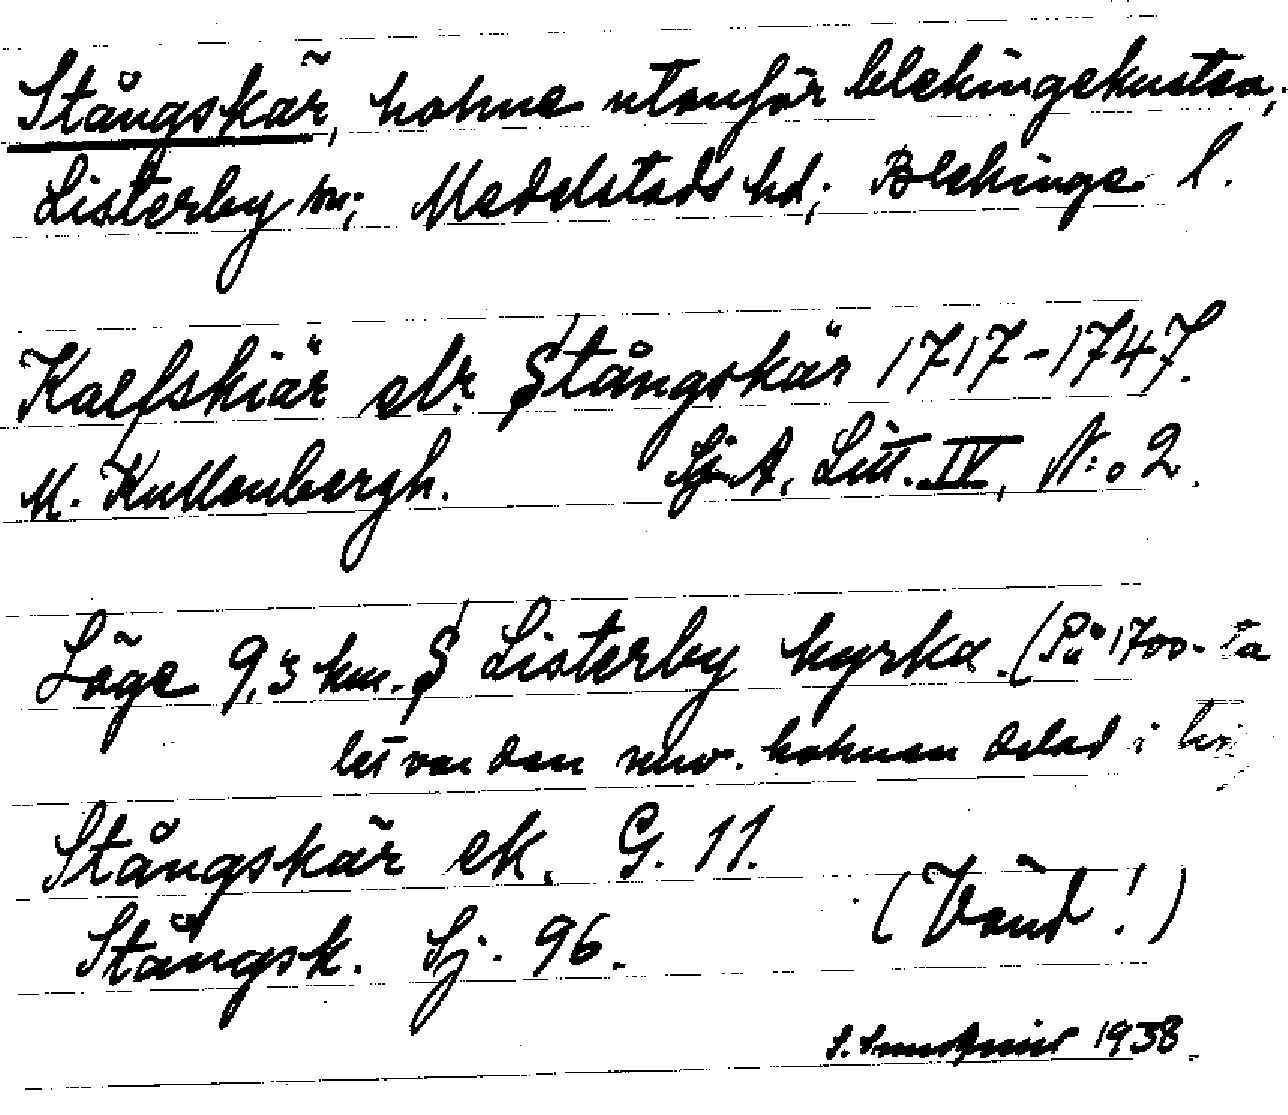 Stångskär, holme utanför blekingekusten,
Listerby sn; Medelstads hd; Blekinge l.
Kalfskiär elr. Stångskär 1717-1747.
M. Kullenbergh. Sj. A, Litt. IV, N:o 2.
Läge 9,3 km. S Listerby kyrka. (På 1700-ta
let var den nuv. holmen delad i
Stångskär ek. G. 11.
Stångsk. Sj. 96.
(Vänd!)
1938